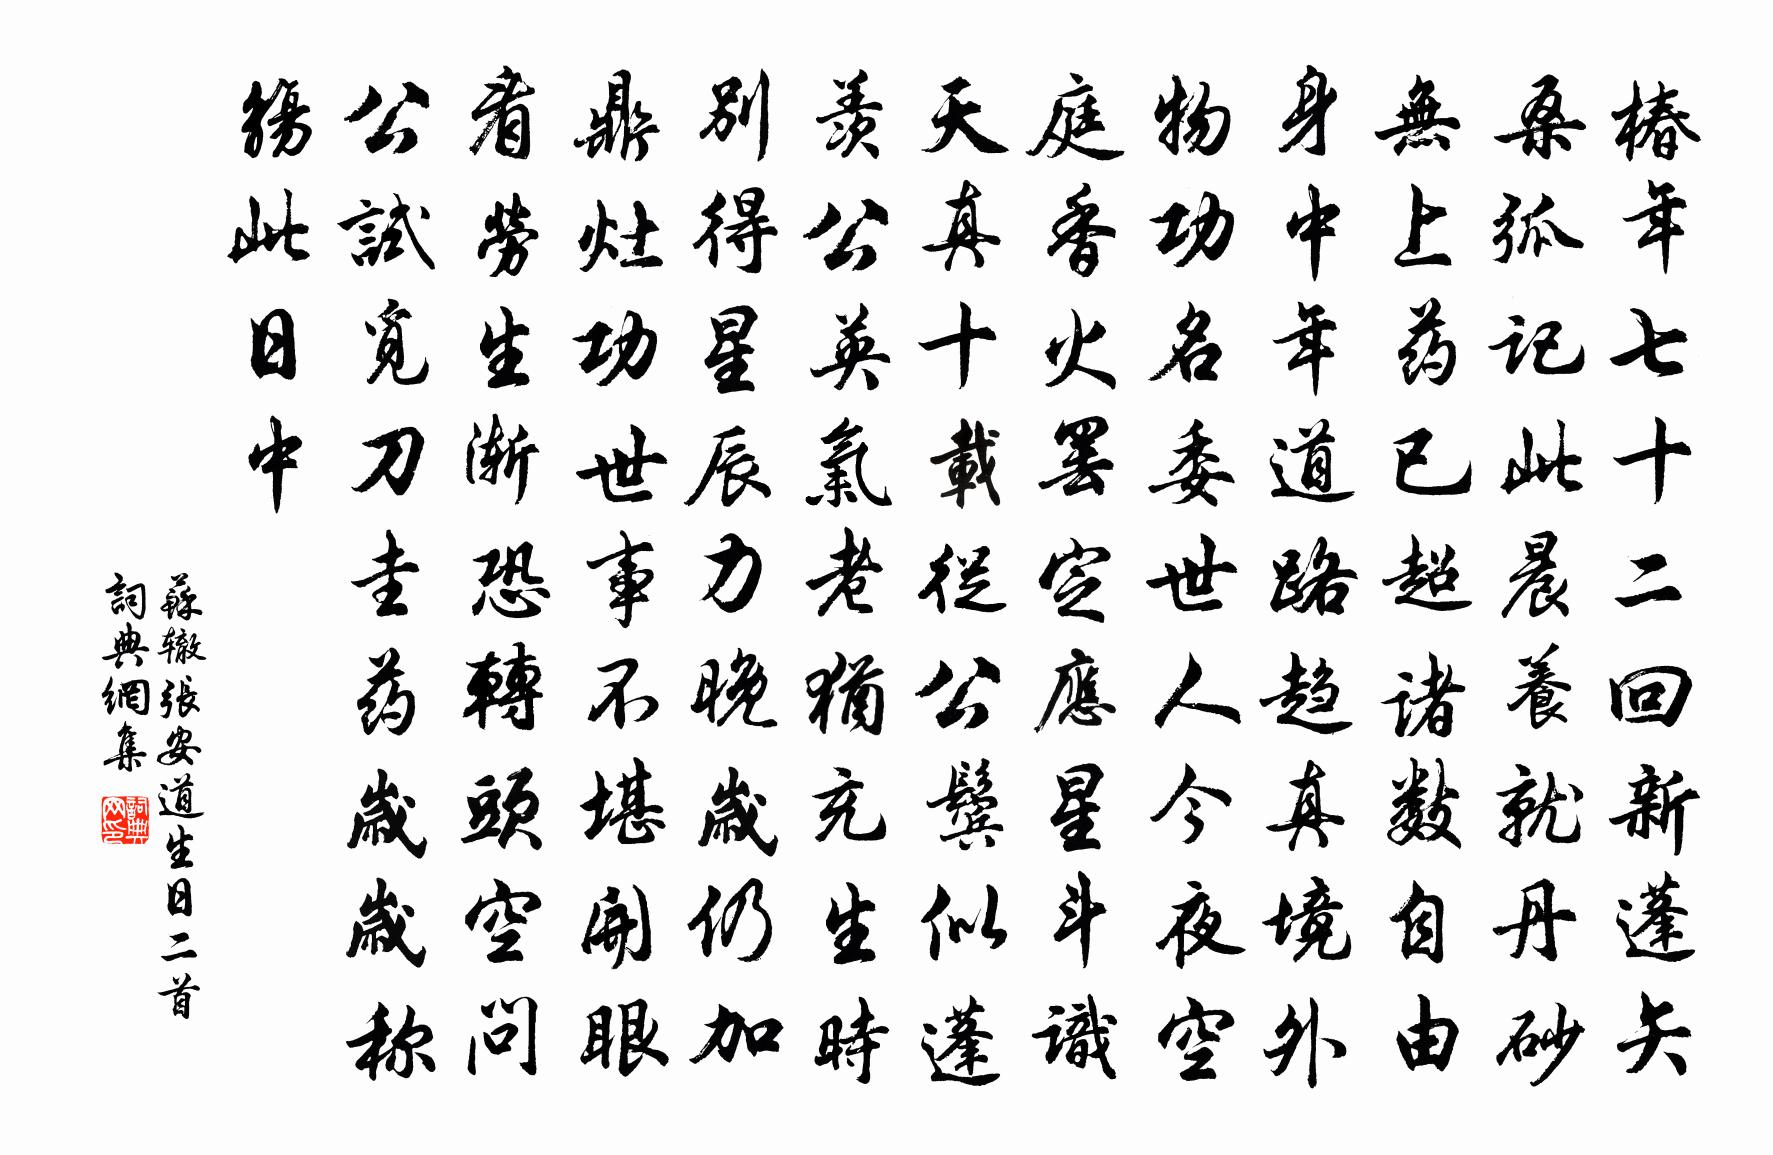 椿年七十二回新蓬矢
桑弧記此晨養就丹砂
無上药已超诸数自由
身中年道路趋真境外
物功名委世人今夜空
庭香火罢空應星斗識
天真十載從公鬓似蓬
羨公英氣老猶充生時
别得星辰力晚歲仍加
鼎灶功世事不堪開眼
看勞生渐恐轉頭空問
公試覓刀圭药歲歲称
觴此日中
蘇辙張安道生日二首
詞典網集
詞典网印